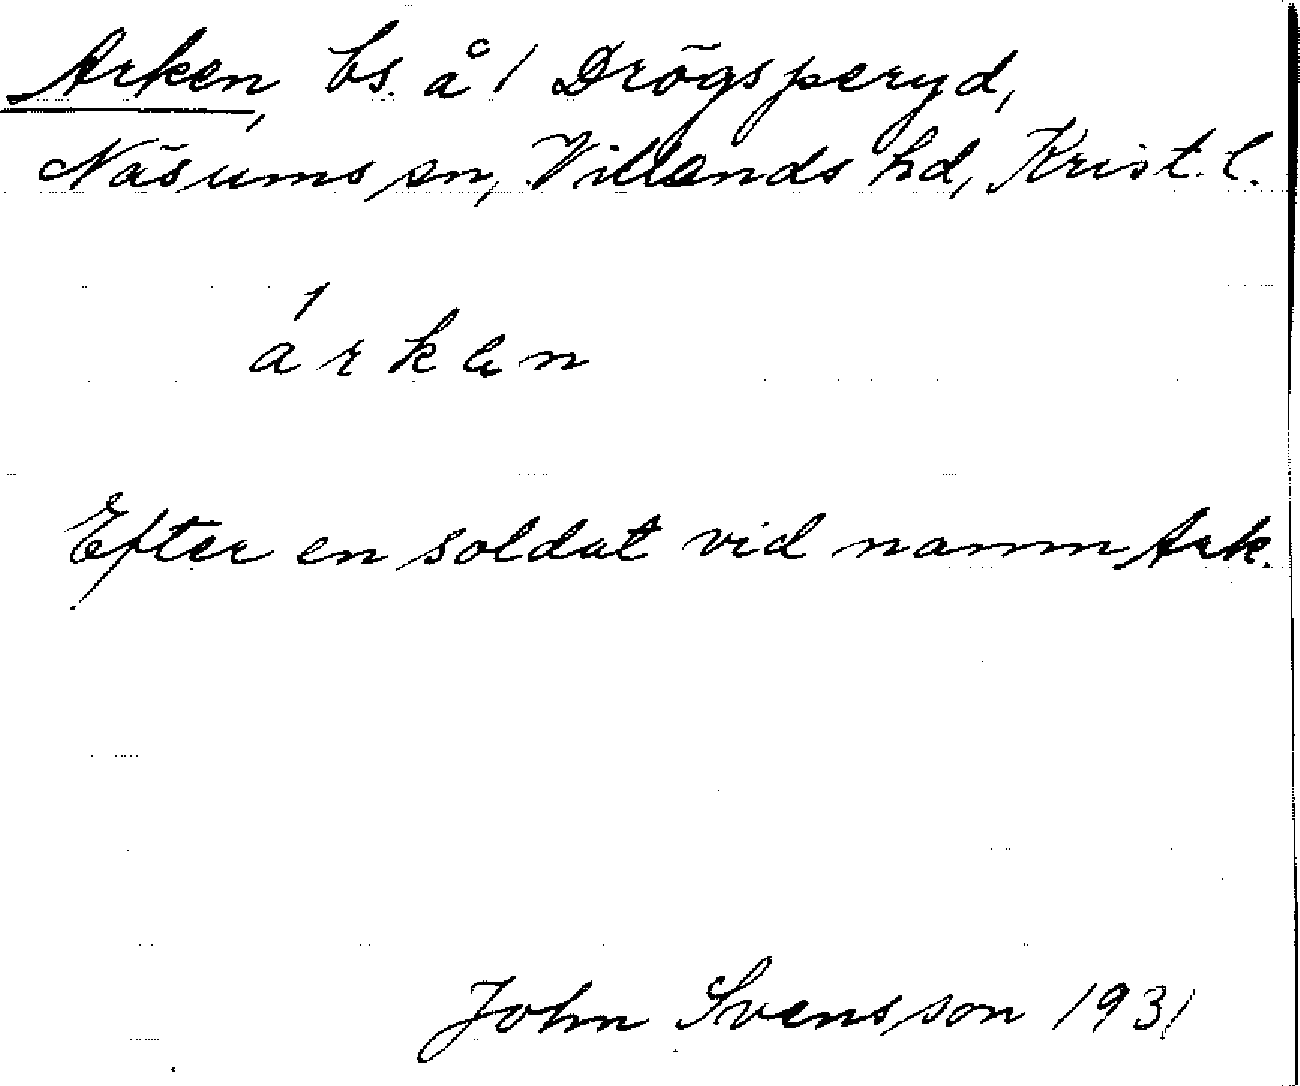 Arken, bs. å 1 Drögsperyd,
Näsums sn, Villands hd, Krist. l.
árken
Efter en soldat vid namn Ark.
John Svensson 1931